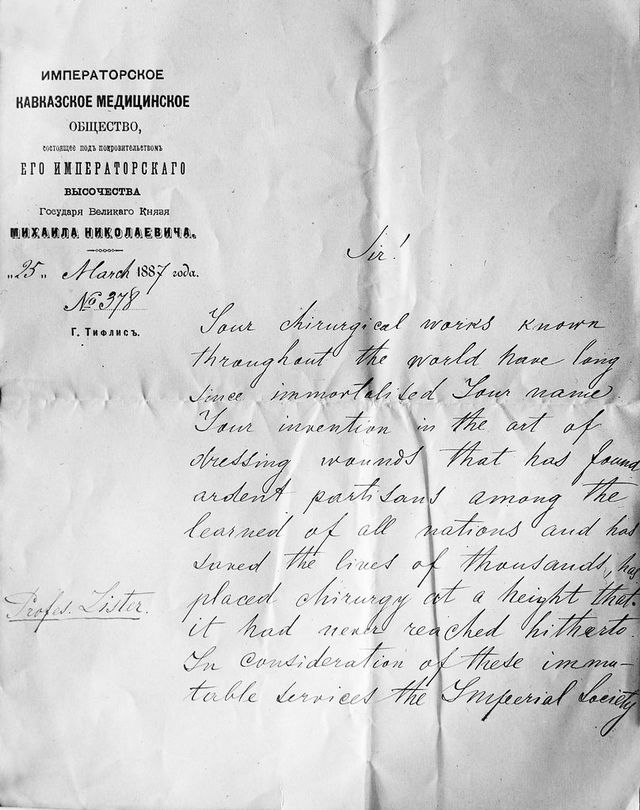 ИМПЕРАТОРСКОЕ
КАВКАЗСКОЕ МЕДИЦИНСКОЕ
ОБЩЕСТВО,
состоящее подъ покровительствомъ
ЕГО ИМПЕРАТОРСКАГО
ВЫСОЧЕСТВА
Государя Великаго Князя
МИХАИЛА НИКОЛАЕВИЧА.
„25„ March 1887 года.
No 378
Г. Тифлисъ.
Sir!
Your chirurgical works known
throughout the world have long
since immortalised Your name.
Your invention in the art of
dressing wounds that has found
ardent partisans among the
learned of all nations and has
saved the lives of thousands, has
placed chirurgy at a height that
it had never reached hitherto.
In consideration of these immu-
table services the Imperial Society
Profes. Lister.